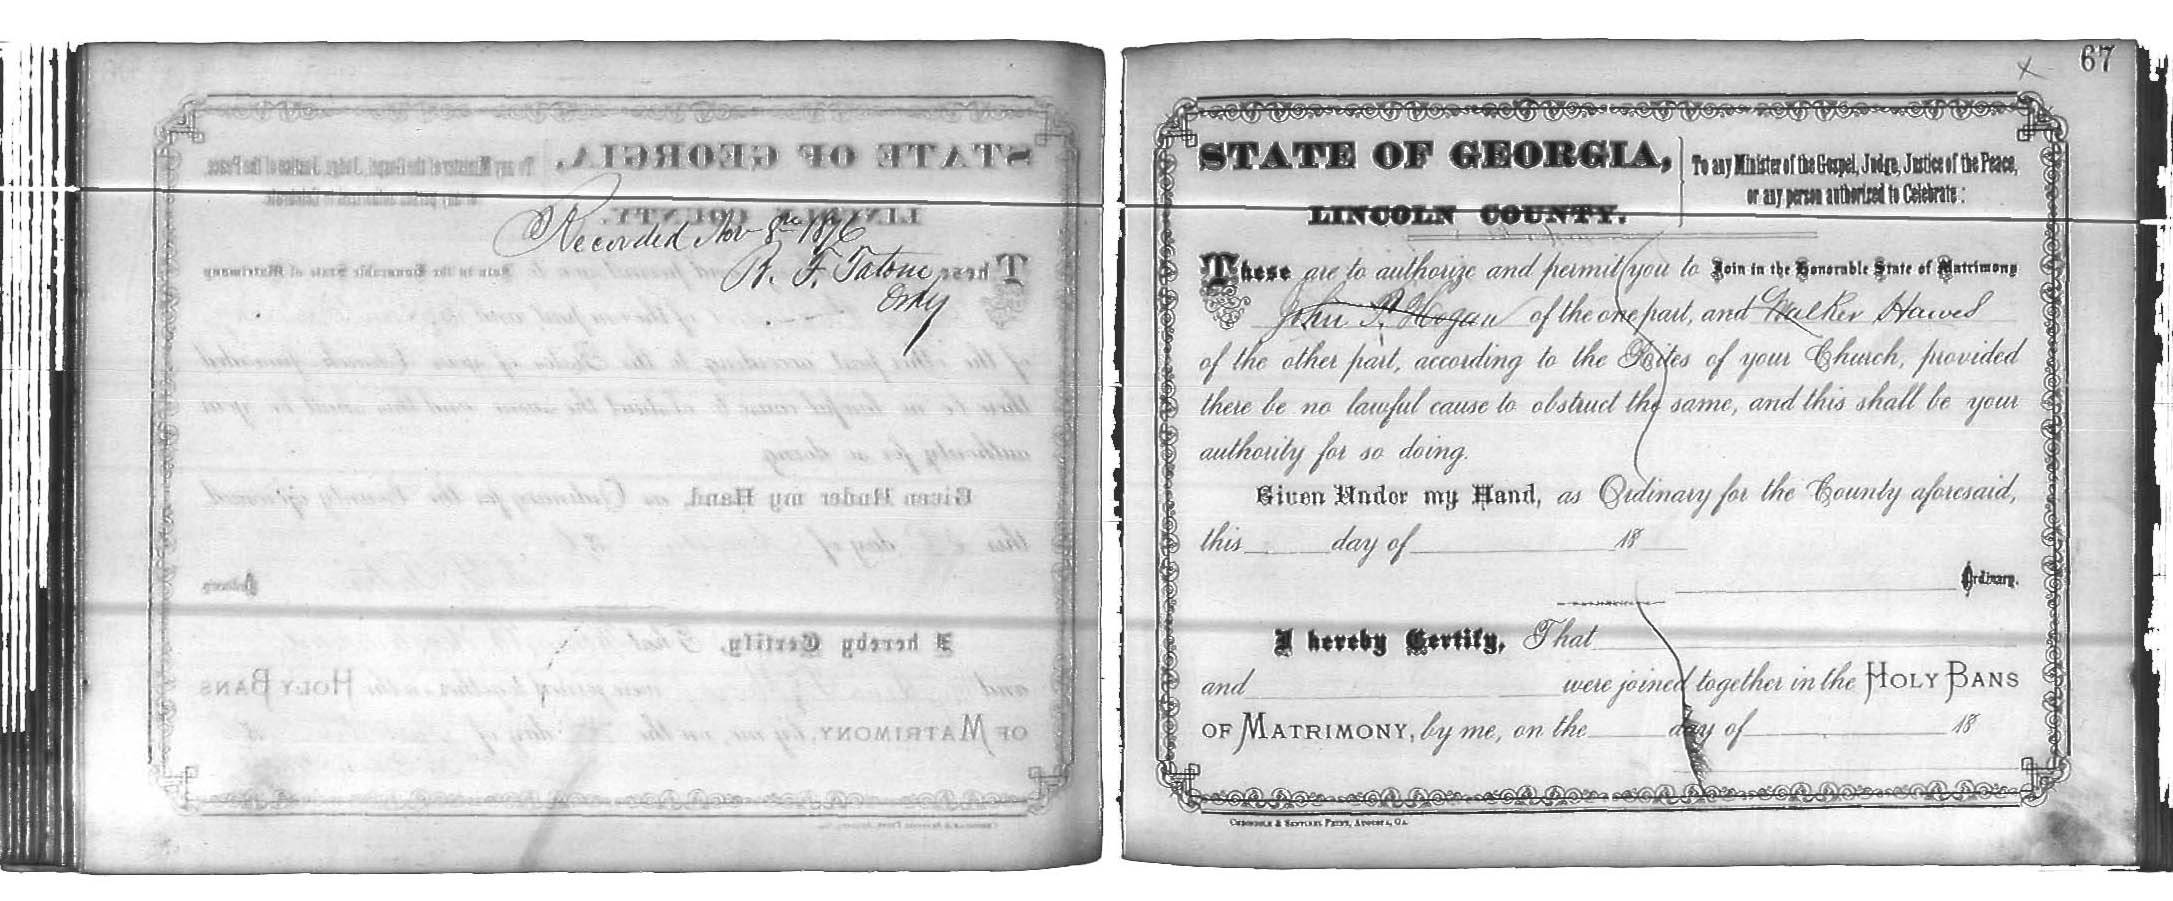 Recorded Nov 8th 1876
B. F. Tatom
Ordy
67
x
STATE OF GEORGIA,
LINCOLN COUNTY.
To any Minister of the Gospel, Judge, Justice of the Peace,
or any person authorized to Celebrate:
These are to authorize and permit you to Join in the Honorable State of Matrimony
John P. Hogan of the one part, and Walker Hawes
of the other part, according to the Rites of your Church, provided
there be no lawful cause to obstruct the same, and this shall be your
authority for so doing.
Given Under my Hand, as Ordinary for the County aforesaid,
this day of 18
Ordinary.
I hereby Certify, That
and were joined together in the HOLY BANS
OF MATRIMONY, by me, on the day of 18
CHRONICLE & SENTINEL PRINT, AUGUSTA, GA.